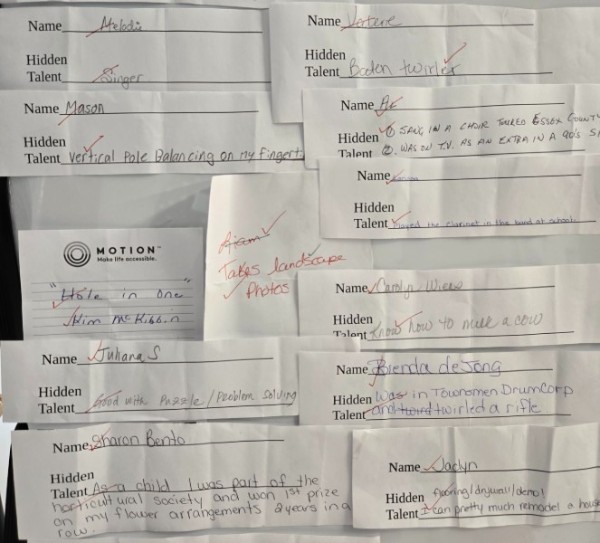 Name Melodie
Hidden
Talent Singer
Name
Hidden
Talent Baton twirler
Name Mason
Hidden
Talent Vertical Pole Balancing on my fingert
Name AE
Hidden ① SANG IN A CHOIR TOURED ESSEX COUNTY
Talent ②. WAS ON T.V. AS AN EXTRA IN A 90'S
Name
Hidden
Talent Played the clarinet in the band at school
MOTION™
Make life accessible.
"Hole in One"
Kim McKibbin
Takes landscape
Photos
Name Carolyn
Hidden
Talent Know how to milk a cow
Name Juliana S
Hidden
Talent Good with Puzzle/Problem Solving
Name Brenda deJong
Hidden Was in Townsmen DrumCorp
Talent and twirled a rifle
Name Sharon Bento
Hidden
Talent As a child I was part of the
horticultural society and won 1st prize
on my flower arrangements 2 years in a
row.
Name Jaclyn
Hidden flooring/drywall/demo!
Talent I can pretty much remodel a house